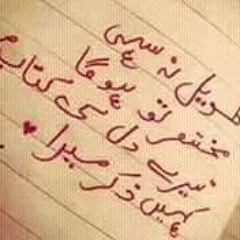 طویل نہ سہی
مختصر تو ہوگا
تیرے دل کی کتاب میں
کہیں ذکر میرا